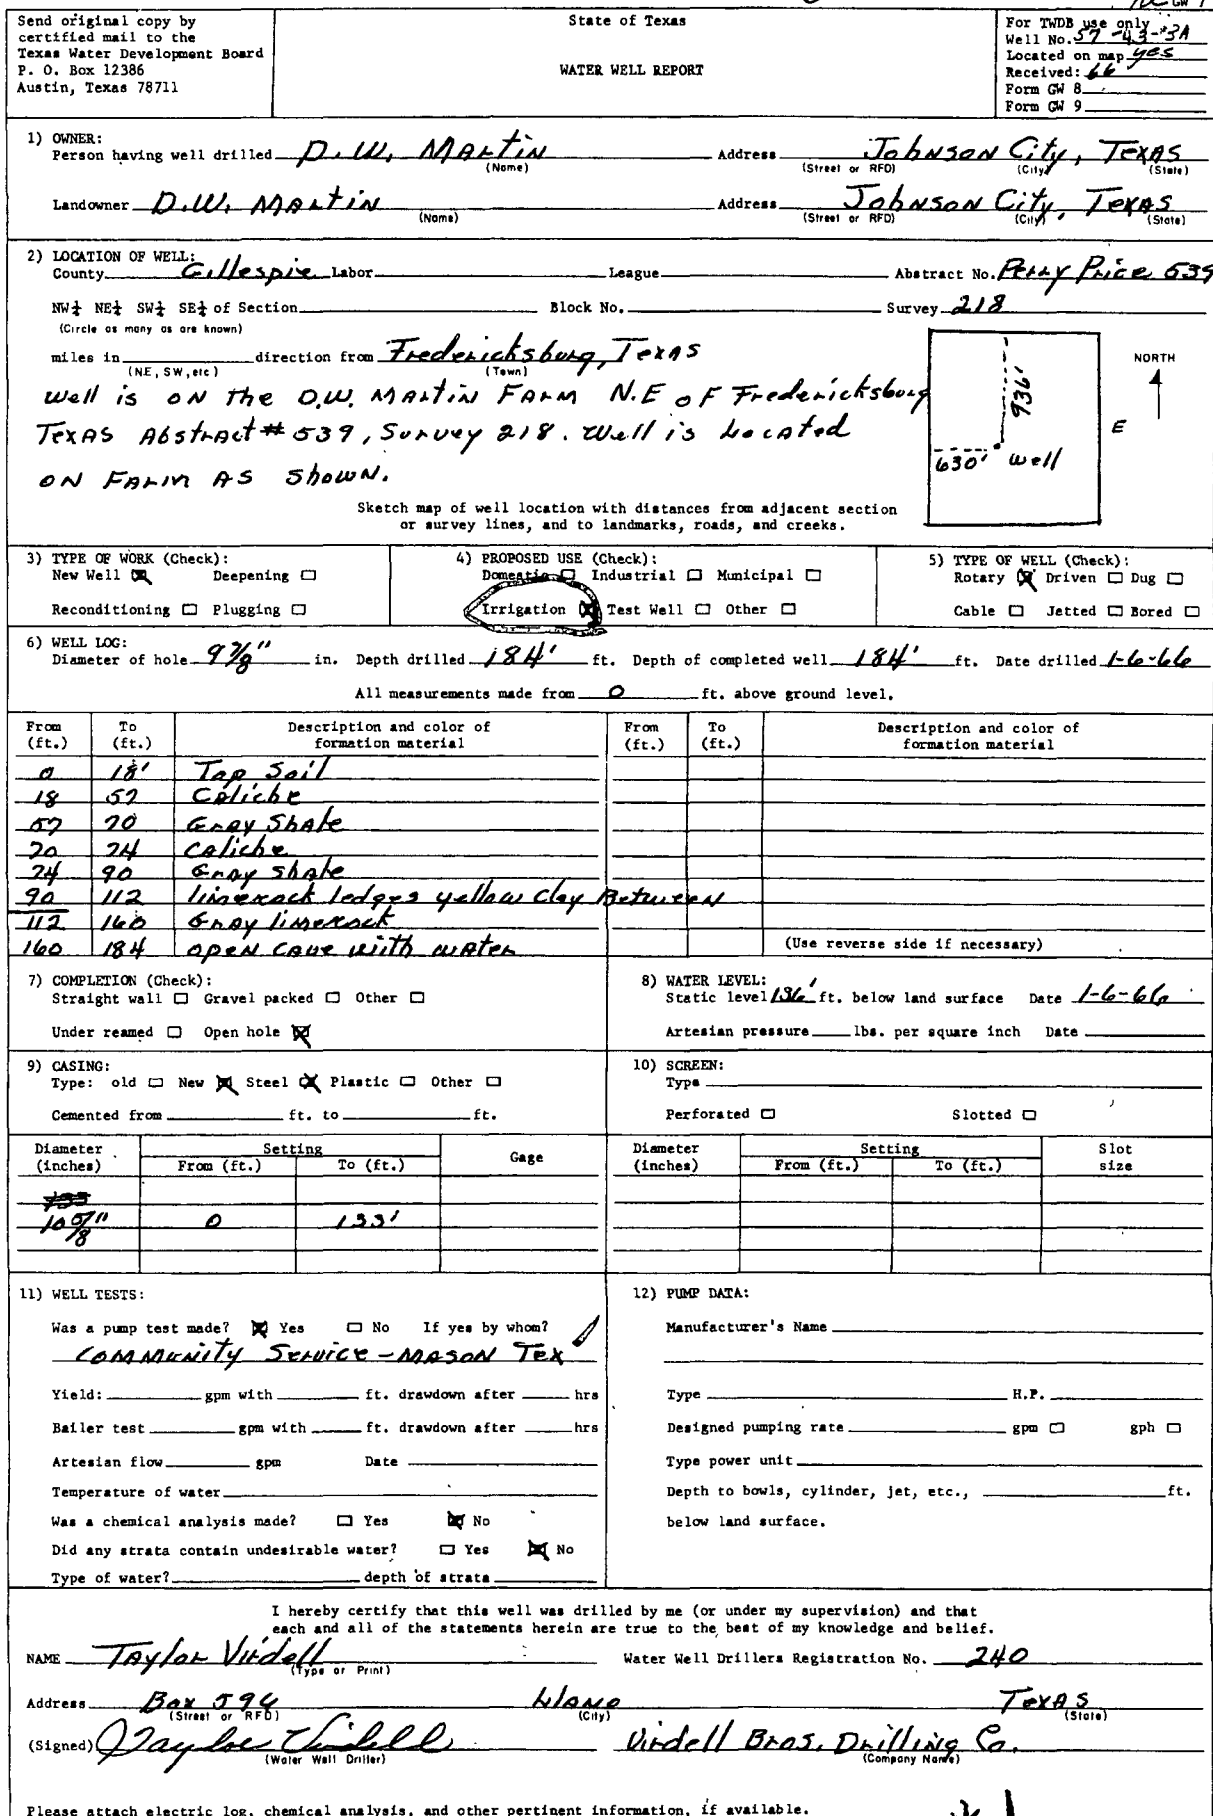 Send original copy by
certified mail to the
Texas Water Development Board
P. O. Box 12386
Austin, Texas 78711
State of Texas
WATER WELL REPORT
GW
For TWDB use only
Well No. 57-43-*3A
Located on map yes
Received: 66
Form GW 8
Form GW 9
1) OWNER:
Person having well drilled D.W. Martin Address Johnson City, Texas
(Name) (Street or RFD) (City) (State)
Landowner D.W. Martin Address Johnson City, Texas
(Name) (Street or RFD) (City) (State)
2) LOCATION OF WELL:
County Gillespie Labor League Abstract No. Perry Price 539
NW¼ NE¼ SW¼ SE¼ of Section Block No. Survey 218
(Circle as many as are known)
miles in direction from Fredericksburg, Texas
(NE, SW, etc) (Town)
Well is on the D.W. Martin Farm N.E of Fredericksburg
Texas Abstract # 539, Survey 218. Well is Located
on Farm as shown.
936'
630' well
NORTH
E
Sketch map of well location with distances from adjacent section
or survey lines, and to landmarks, roads, and creeks.
3) TYPE OF WORK (Check):
New Well Deepening
Reconditioning Plugging
4) PROPOSED USE (Check):
Domestic Industrial Municipal
Irrigation Test Well Other
5) TYPE OF WELL (Check):
Rotary Driven Dug
Cable Jetted Bored
6) WELL LOG:
Diameter of hole 9 7/8" in. Depth drilled 184' ft. Depth of completed well 184' ft. Date drilled 1-6-66
All measurements made from 0 ft. above ground level.
From (ft.) To (ft.) Description and color of formation material
From (ft.) To (ft.) Description and color of formation material
0 18' Top Soil
18 57 Caliche
57 70 Gray Shale
70 74 Caliche
74 90 Gray shale
90 112 limerock ledges yellow Clay Between
112 160 Gray limerock
160 184 open cave with water
(Use reverse side if necessary)
7) COMPLETION (Check):
Straight wall Gravel packed Other
Under reamed Open hole
8) WATER LEVEL:
Static level 136' ft. below land surface Date 1-6-66
Artesian pressure lbs. per square inch Date
9) CASING:
Type: old New Steel Plastic Other
Cemented from ft. to ft.
10) SCREEN:
Type
Perforated Slotted
Diameter (inches) Setting From (ft.) To (ft.) Gage
Diameter (inches) Setting From (ft.) To (ft.) Slot size
10 5/8" 0 133'
11) WELL TESTS:
Was a pump test made? Yes No If yes by whom?
Community Service - Mason Tex
Yield: gpm with ft. drawdown after hrs
Bailer test gpm with ft. drawdown after hrs
Artesian flow gpm Date
Temperature of water
Was a chemical analysis made? Yes No
Did any strata contain undesirable water? Yes No
Type of water? depth of strata
12) PUMP DATA:
Manufacturer's Name
Type H.P.
Designed pumping rate gpm gph
Type power unit
Depth to bowls, cylinder, jet, etc., ft.
below land surface.
I hereby certify that this well was drilled by me (or under my supervision) and that
each and all of the statements herein are true to the best of my knowledge and belief.
NAME Taylor Virdell Water Well Drillers Registration No. 240
(Type or Print)
Address Box 594 Llano Texas
(Street or RFD) (City) (State)
(Signed) Taylor Virdell Virdell Bros. Drilling Co.
(Water Well Driller) (Company Name)
Please attach electric log, chemical analysis, and other pertinent information, if available.